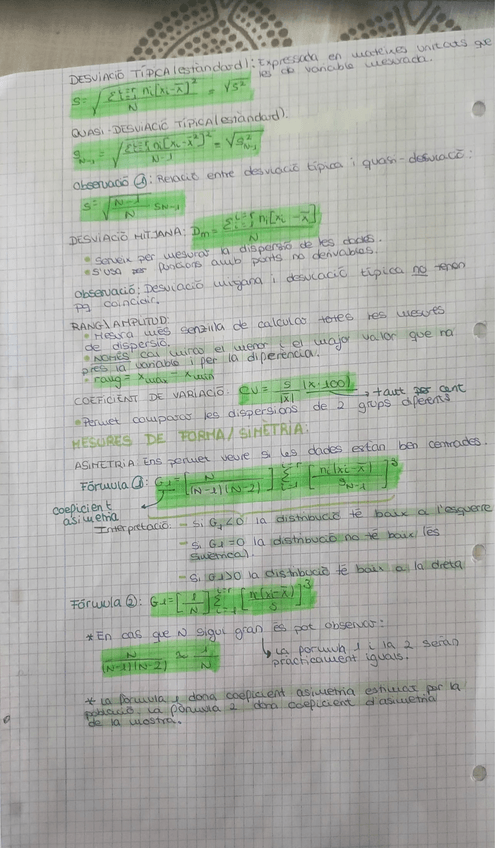 DESVIACIÓ TÍPICA (estàndard): Expressada en mateixes unitats que
les de variable mesurada.
S = √(Σ_{i=1}^{i=r} n_i [x_i - x̄]² / N) = √S²
QUASI-DESVIACIÓ TÍPICA (estàndard).
S_{N-1} = √(Σ_{i=1}^{i=r} n_i [x_i - x̄]² / N-1) = √S²_{N-1}
Observació ①: Relació entre desviació típica i quasi-desviació:
S = √(N-1 / N) S_{N-1}
DESVIACIÓ MITJANA: Dm = Σ_{i=1}^{i=r} n_i |x_i - x̄| / N
• Serveix per mesurar la dispersió de les dades.
• S'usa funcions amb punts no derivables.
Observació: Desviació mitjana i desviació típica no tenen
pq coincidir.
RANG/AMPLITUD:
• Mesura més senzilla de calcular totes les mesures
de dispersió.
• NOMÉS cal mirar el menor i el major valor que ha
près la variable i fer la diferència.
• rang = x max - x min
COEFICIENT DE VARIACIÓ: CV = S / |x̄| (x·100) → tant per cent
• Permet comparar les dispersions de 2 grups diferents
MESURES DE FORMA/SIMETRIA:
ASIMETRIA: Ens permet veure si les dades estan ben centrades.
Fórmula ①: G1 = [N / (N-1)(N-2)] Σ_{i=1}^{i=r} [n_i(x_i - x̄) / S_{N-1}]³
coeficient
asimetria
Interpretació: - Si G1<0 la distribució té baix a l'esquerre
- Si G1=0 la distribució no té baix (és
simètrica).
- Si G1>0 la distribució té baix a la dreta
Fórmula ②: G1 = [1 / N] Σ_{i=1}^{i=r} [n_i(x_i - x̄) / S]³
* En cas que N sigui gran és pot observar:
N / (N-1)(N-2) ≈ 1 / N
↳ La fórmula 1 i la 2 seràn
pràcticament iguals.
* La fórmula 1 dona coeficient asimetria estimat per la
població. La fórmula 2 dona coeficient d'asimetria
de la mostra.